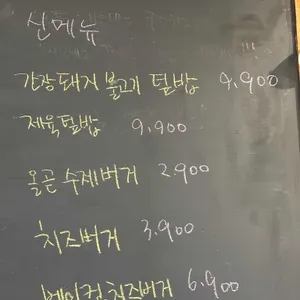 신메뉴
간장돼지 불고기 덮밥 9,900
제육덮밥 9,900
올곧 수제버거 2900
치즈버거 3,900
베이컨 치즈버거 6,900